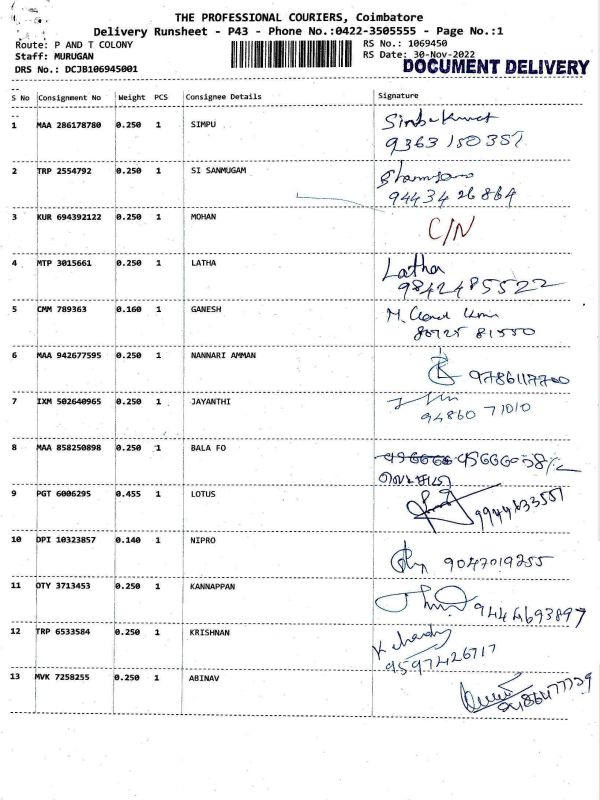 THE PROFESSIONAL COURIERS, Coimbatore
Delivery Runsheet - P43 - Phone No.:0422-3505555 - Page No.:1
Route: P AND T COLONY
RS No.: 1069450
Staff: MURUGAN
RS Date: 30-Nov-2022
DRS No.: DCJB106945001
DOCUMENT DELIVERY
S No Consignment No Weight PCS Consignee Details Signature
1 MAA 286178780 0.250 1 SIMPU
9363 150357
2 TRP 2554792 0.250 1 SI SANMUGAM
94434 26864
3 KUR 694392122 0.250 1 MOHAN C/N
4 MTP 3015661 0.250 1 LATHA Latha
9842485522
5 CMM 789363 0.160 1 GANESH
80725 81550
6 MAA 942677595 0.250 1 NANNARI AMMAN
9786117700
7 IXM 502640965 0.250 1 JAYANTHI
94860 71010
8 MAA 858250898 0.250 1 BALA FO
9 PGT 6006295 0.455 1 LOTUS
9944633557
10 DPI 10323857 0.140 1 NIPRO
9047019255
11 OTY 3713453 0.250 1 KANNAPPAN
9444693897
12 TRP 6533584 0.250 1 KRISHNAN
9597426717
13 MVK 7258255 0.250 1 ABINAV